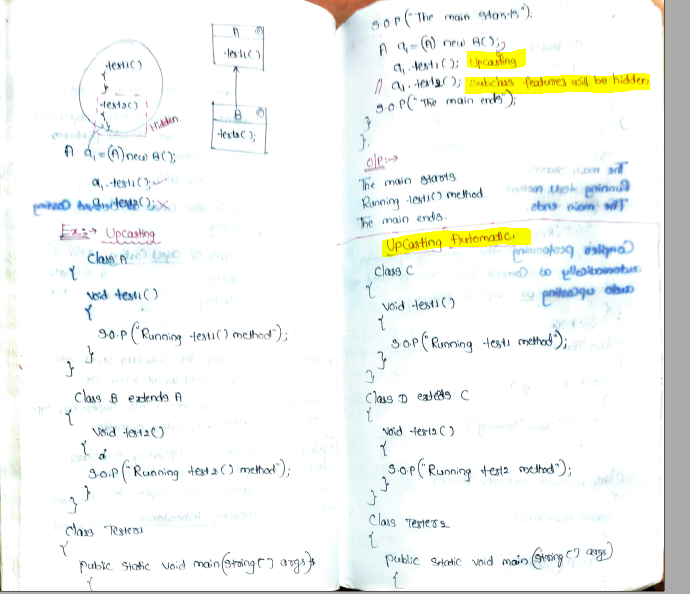 test1()
{
}
test2()
{
}
Hidden.
A
test1()
B
test2();
A a1 = (A) new B();
a1.test1();
a1.test2();
Ex:→ Upcasting
Class A
{
void test1()
{
S.O.P("Running test1() method");
}
}
Class B extends A
{
void test2()
{
S.O.P("Running test2() method");
}
}
Class Tester1
{
public static void main(String[] args)
{
S.O.P("The main starts");
A a1 = (A) new B();
a1.test1(); Upcasting
// a1.test2(); Subclass features will be hidden
S.O.P("The main ends");
}
}.
O/P:→
The main starts
Running test1() method
The main ends.
UpCasting Automatic.
Class C
{
void test1()
{
S.O.P("Running test1 method");
}
}
Class D extends C
{
void test2()
{
S.O.P("Running test2 method");
}
}
Class Tester2
{
public static void main(String[] args)
{